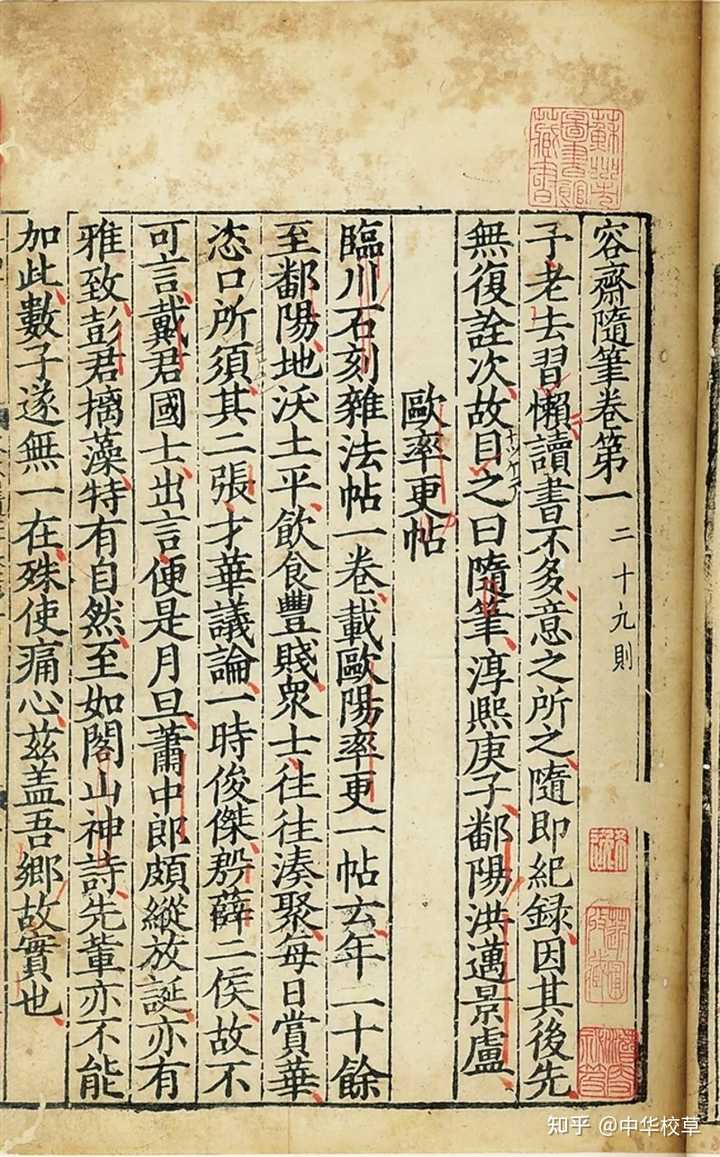 容齋隨筆卷第一 二十九則
予老去習懶讀書不多意之所之隨即紀録因其後先
無復詮次故目之曰隨筆淳熙庚子鄱陽洪邁景盧
歐率更帖
臨川石刻雜法帖一卷載歐陽率更一帖云年二十餘
至鄱陽地沃土平飲食豐賤衆士往往湊聚每日賞華
恣口所須其二張才華議論一時俊傑殷薛二侯故不
可言戴君國士出言便是月旦蕭中郎頗縱放誕亦有
雅致彭君摛藻特有自然至如閣山神詩先輩亦不能
加此數子遂無一在殊使痛心兹盖吾鄉故實也
蘇州
圖書館
藏書
知乎 @中华校草